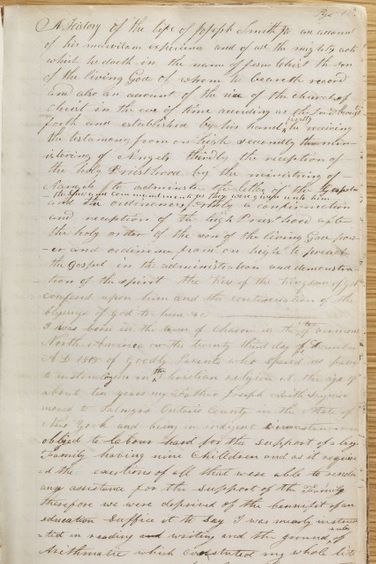 A History of the life of Joseph Smith Jr. an account
of his marvilous experience and of all the mighty acts
which he doeth in the name of Jesus Christ the son
of the living God of whom he beareth record
and also an account of the rise of the church of
Christ in the eve of time according as the Lord brought
forth and established by his hand firstly he receiving
the testamony from on high secondly the min
istering of Angels thirdly the reception of
the holy Priesthood by the ministring of
Aangels to adminster the letter of the Gospel
the Law and commandments as they were given unto him
and the ordinencs forthly a confirmation
and reception of the high Priesthood after
the holy order of the son of the living God pow
er and ordinence from on high to preach
the Gospel in the administration and demonstra
tion of the spirit the Kees of the Kingdom of God
confered upon him and the continuation of the
blessings of God to him &c
I was born in the town of Charon in the of Vermont
North America on the twenty third day of December
A D 1805 of goodly Parents who spared no pains
to instructing me in the christian religion at the age of
about ten years my Father Joseph Smith Seignior
moved to Palmyra Ontario County in the State of
New York and being in indigent circumstances
obliged to labour hard for the support of a large
Family having nine chilldren and as it requir
ed the exertions of all that were able to render
any assistance for the support of the Family
therefore we were deprived of the bennifit of an
education suffice it to say I was mearly instruc
tid in reading and writing and the ground rules
of Arithmatic which constuted my whole lite